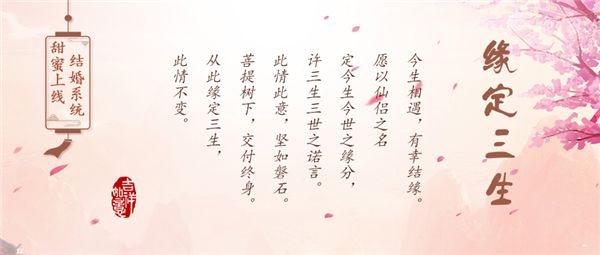 缘定三生
今生相遇，有幸结缘。
愿以仙侣之名
定今生今世之缘分，
许三生三世之诺言。
此情此意，坚如磐石。
菩提树下，交付终身。
从此缘定三生，
此情不变。
结婚系统
甜蜜上线
吉祥如意